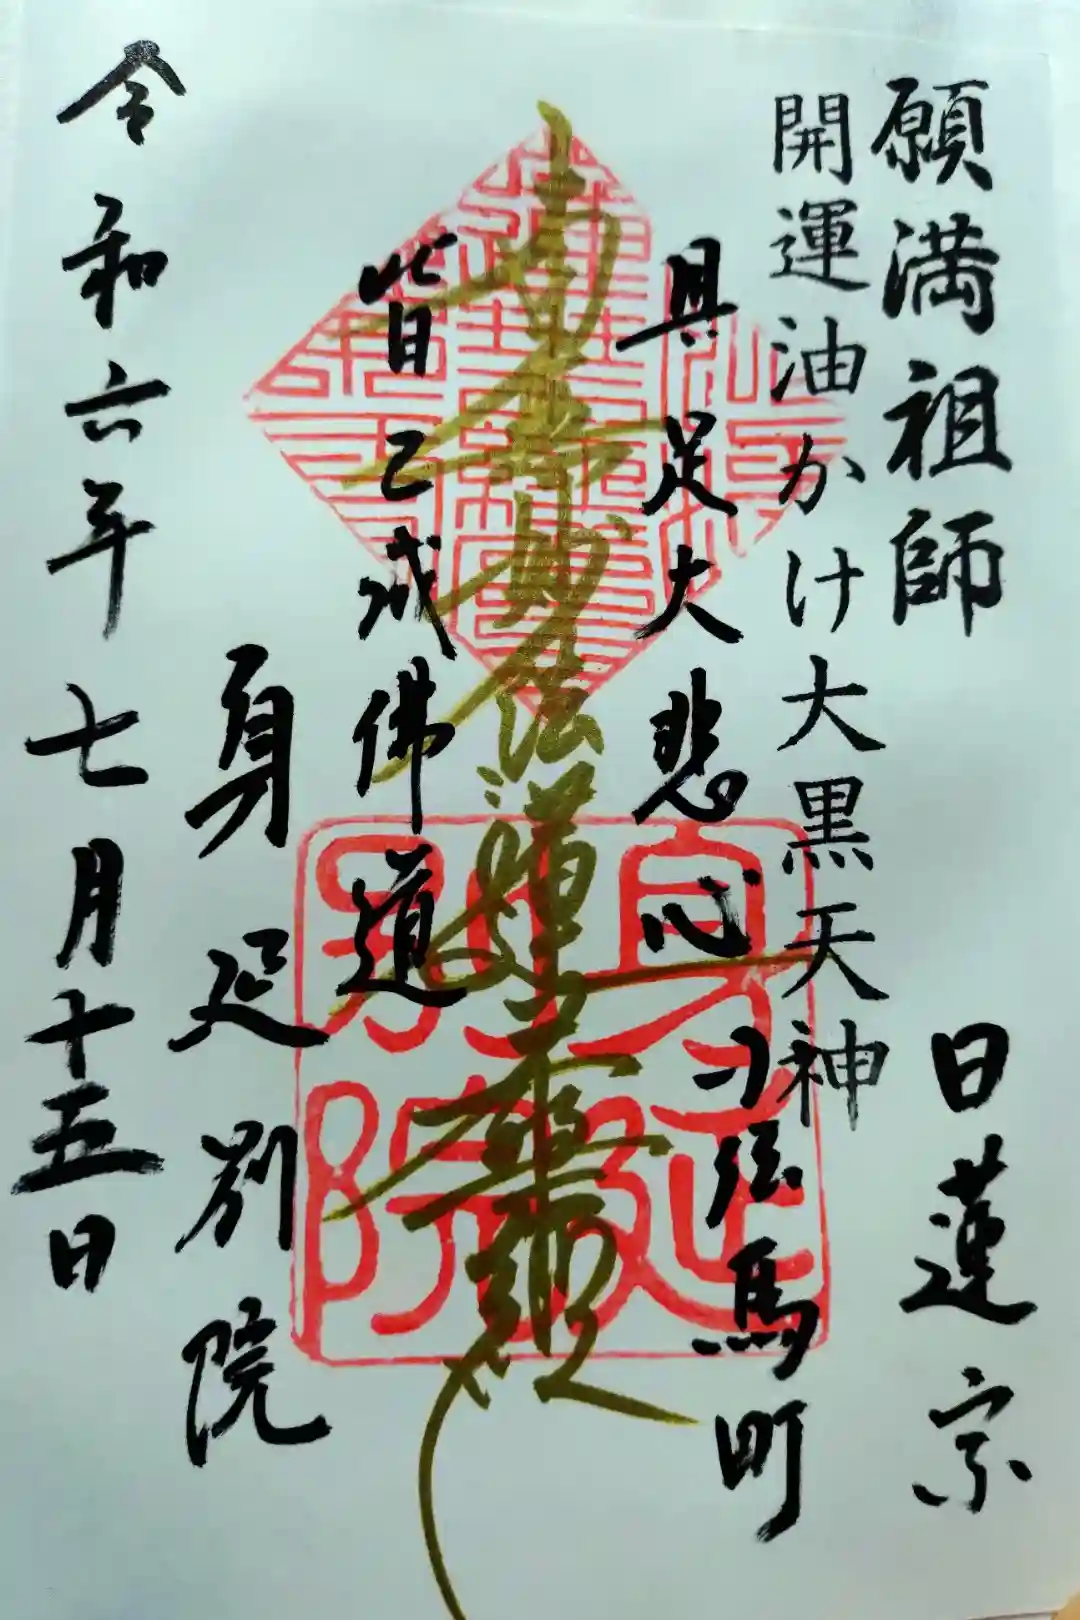 願満祖師
日蓮宗
開運油かけ大黒天神
具足大悲心
小伝馬町
南無妙法蓮華経
皆已成佛道
身延別院
令和六年七月十五日
身延別院